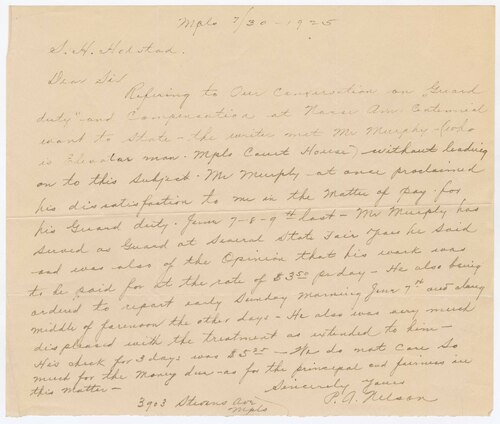 Mpls 7/30-1925
S. H. Holstad.
Dear Sir
Refering to Our Conversation on Guard
duty" and Compensation at Norse Am. Centennial
want to State - the writer met Mr Murphy - (who
is Elevator man - Mpls Court House) - without leading
on to this Subject. Mr Murphy - at once proclaimed
his dissatisfaction to me in the Matter of Pay - for
his Guard duty. June 7-8-9th last - Mr Murphy has
Served as Guard at Several State Fair Years he Said
and was also of the Opinion that his work was
to be paid for at the rate of $3.50 pr day - He also being
ordered to report early Sunday Morning June 7th and along
middle of forenoon the other days - He also was very much
displeased with the treatment as extended to him -
His check for 3 days was $5.25 - We do not Care So
much for the Money due - as for the principal and fairness in
this matter -
Sincerely Yours
P. A. Nelson
3903 Stevens Ave
Mpls